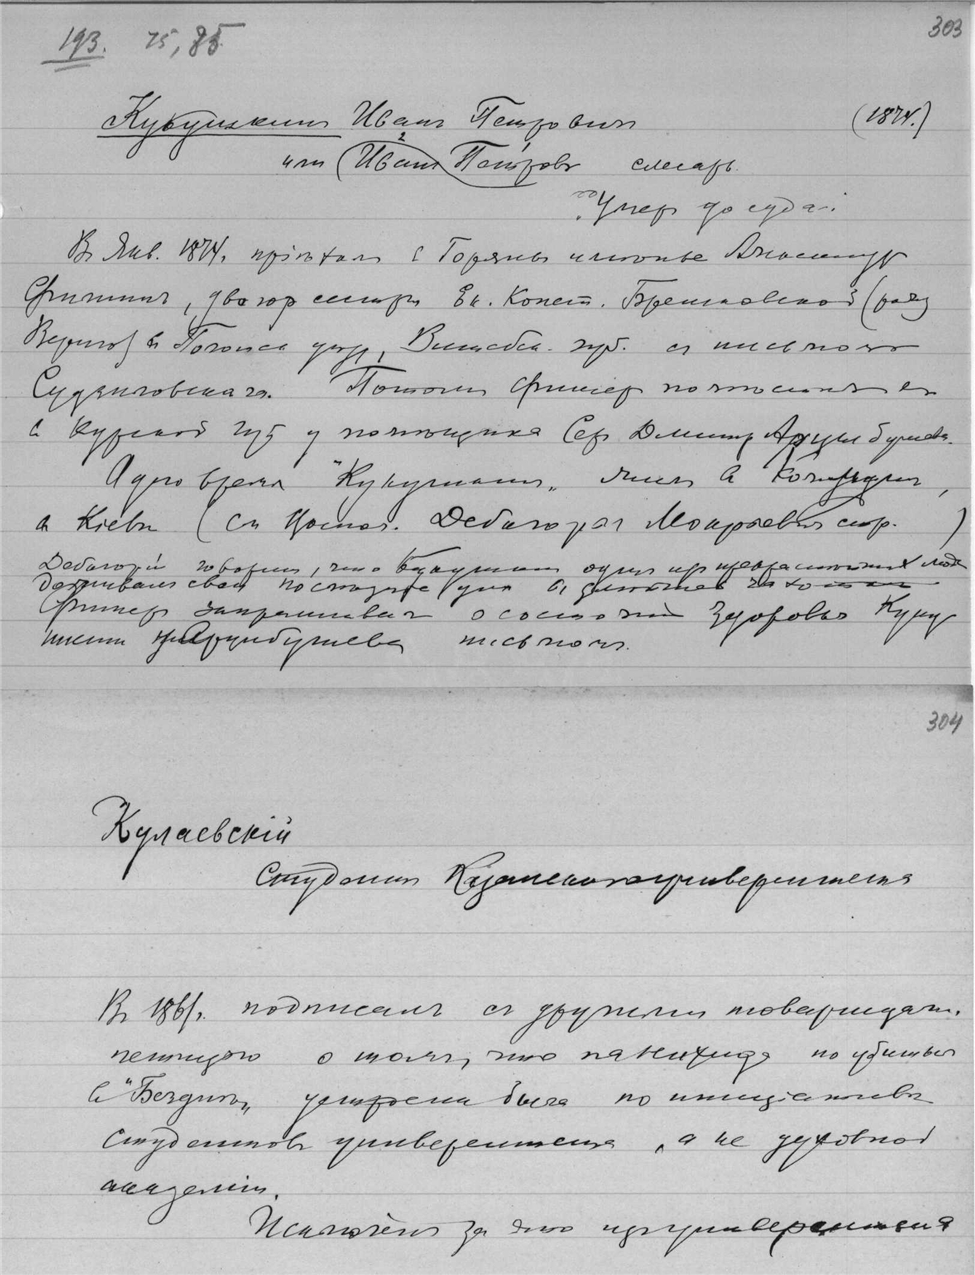 303
193. 75, 85
Кукушкин Иван Петрович (1874.)
или Иван Петров слесарь
Умер до суда.
В Янв. 1874. пріехал с Горяны именье
Фишер, двоюр сестры Ек. Конст. Брешковской (рожд
Вериго) в Полоцк уезд, Витебск. губ. с письмом
Судзиловскаго. Потом Фишер поместила его
в Курской губ у помещика Сер Дмитр Арцыбушева.
Одно время "Кукушкин" жил в Коммуне,
в Кіеве (см показ. Дебагорія Мокріевич стр. )
Дебагорій говорит, что Кукушкин один из прекраснейших людей
Фишер запрашивал о состояніи здоровья Куку
шкина у Арцыбушева письмом.
304
Кулаевскій
Студент Казанского университета
В 1861. подписал с другими товарищами.
петицію о том, что панихида по убитым
в "Бездне" устроена была по инициативе
студентов университета, а не духовной
академіи.
Исключен за это из университета